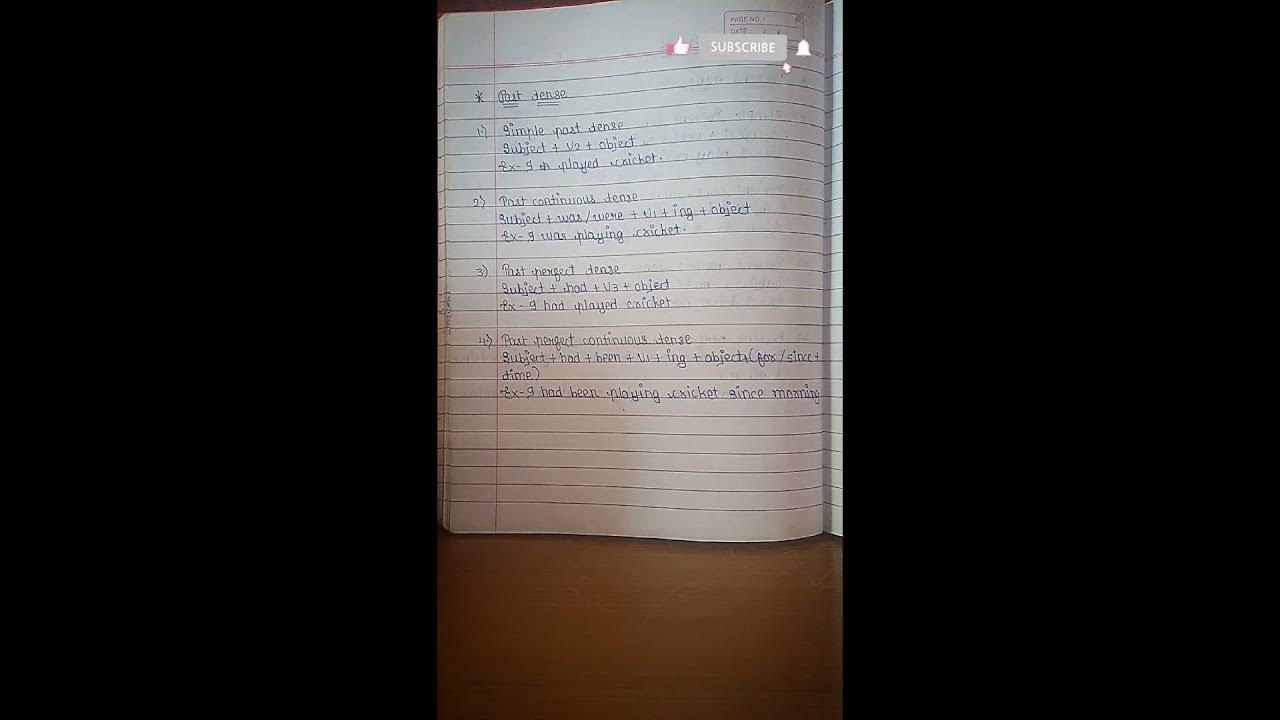 PAGE NO.:
DATE: / /
SUBSCRIBE
* Past tense
1.) Simple past tense
Subject + V2 + object
Ex- I played cricket.
2) Past continuous tense
Subject + was/were + V1 + ing + object
Ex- I was playing cricket.
3) Past perfect tense
Subject + had + V3 + object
Ex- I had played cricket
4.) Past perfect continuous tense
Subject + had + been + V1 + ing + object + (for/since +
time)
Ex- I had been playing cricket since morning